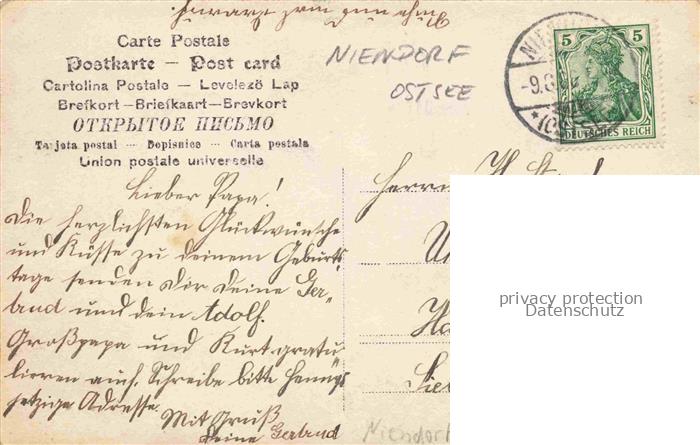 Carte Postale
Postkarte — Post card
Cartolina Postale — Levelező Lap
Brefkort—Briefkaart—Brevkort
ОТКРЫТОЕ ПИСЬМО
Tarjeta postal — Dopisnice — Carta postala
Union postale universelle
NIENDORF
OSTSEE
5 5
DEUTSCHES REICH
Lieber Papa!
Die herzlichsten Glückwünsche
und Küsse zu deinem Geburts
tage senden Dir Deine Ger-
trud und dein Adolf.
Großpapa und Kurt gratu
lieren auch. Schreibe bitte Hennys
jetzige Adresse.
Mit Gruß
Deine Gertrud
Herrn
Niendorf
privacy protection
Datenschutz